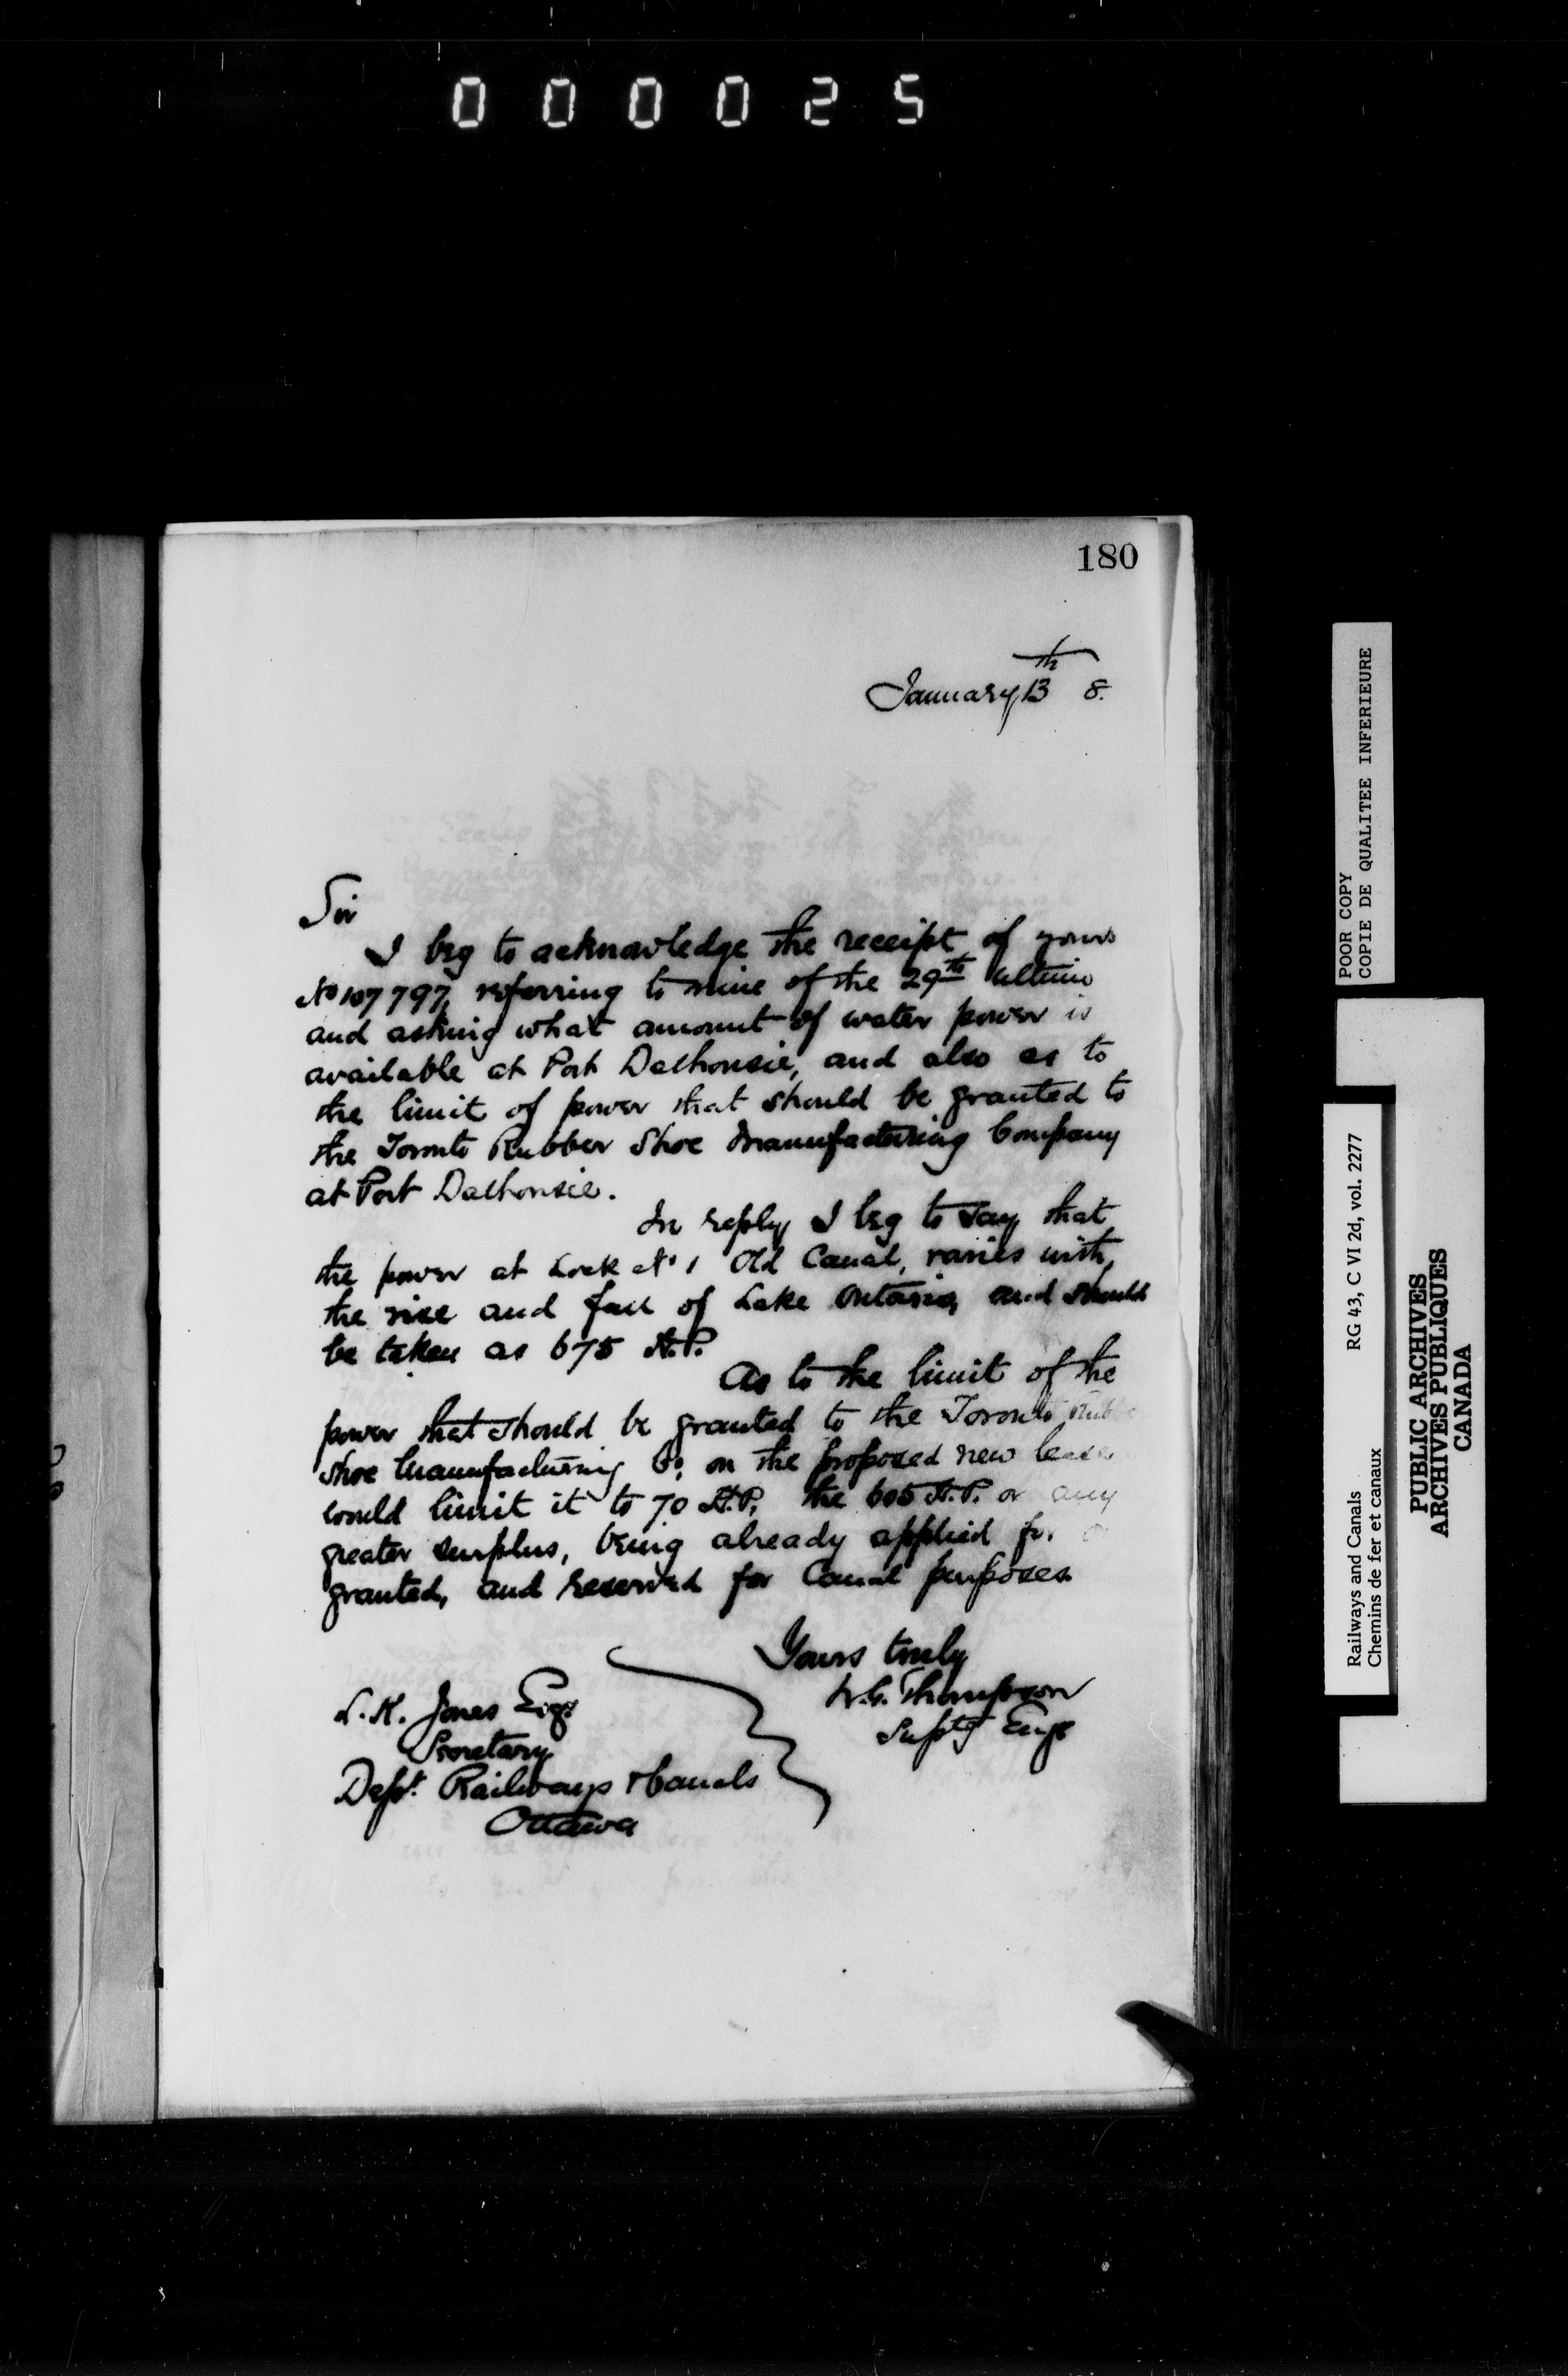 000025
180
January 13th 8.
Sir
I beg to acknowledge the receipt of yours
No 107797, referring to mine of the 29th ultimo
and asking what amount of water power is
available at Port Dalhousie, and also as to
the limit of power that should be granted to
the Toronto Rubber Shoe Manufacturing Company
at Port Dalhousie.
In reply I beg to say that
the power at Lock No 1 Old Canal, varies with
the rise and fall of Lake Ontario, and should
be taken as 675 H.P.
As to the limit of the
power that should be granted to the Toronto Rubbe
Shoe Manufacturing Co, on the proposed new lease
would limit it to 70 H.P. the 605 H.P. or any
greater surplus, being already applied for o
granted, and reserved for Canal purposes.
Yours truly
W.G. Thompson
Suptg Engr
L.K. Jones Esqr
Secretary
Dept. Railways & Canals
Ottawa
POOR COPY
COPIE DE QUALITEE INFERIEURE
Railways and Canals RG 43, C VI 2d, vol. 2277
Chemins de fer et canaux
PUBLIC ARCHIVES
ARCHIVES PUBLIQUES
CANADA